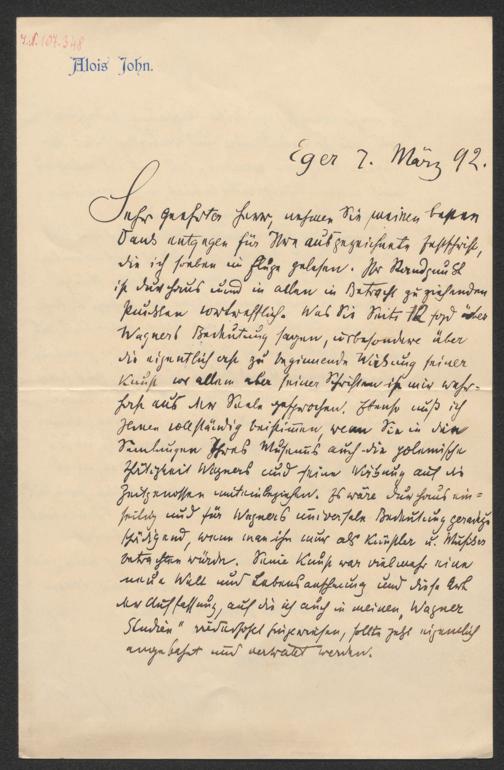 I.N. 107.348
Alois John.
Eger 7. März 92.
Sehr geehrter Herr, nehmen Sie meinen besten
Dank entgegen für Ihre ausgezeichnete Festschrift,
die ich soeben im Fluge gelesen. Ihr Standpunkt
ist durchaus und in allen in Betracht zu ziehenden
Punkten vortrefflich. Was Sie Seite 12 sqd über
Wagners Bedeutung sagen, insbesondere über
die eigentlich erst zu beginnende Wirkung seiner
Kunst vor allem aber seiner Schriften ist mir wahr-
haft aus der Seele gesprochen. Ebenso muß ich
Ihnen vollständig beistimmen, wenn Sie in die
Samlungen Ihres Museums auch die polemische
Thätigkeit Wagners und seine Wirkung auf die
Zeitgenossen miteinbeziehen. Es wäre durchaus ein-
seitig und für Wagners universale Bedeutung geradezu
schädigend, wenn man ihn nur als Künstler u. Musiker
betrachten würde. Seine Kunst war vielmehr eine
neue Welt und Lebensanschauung und diese Art
der Auffassung, auf die ich auch in meinen "Wagner
Studien" wiederholt hingewiesen, sollte jetzt eigentlich
angebahnt und verwaltet werden.